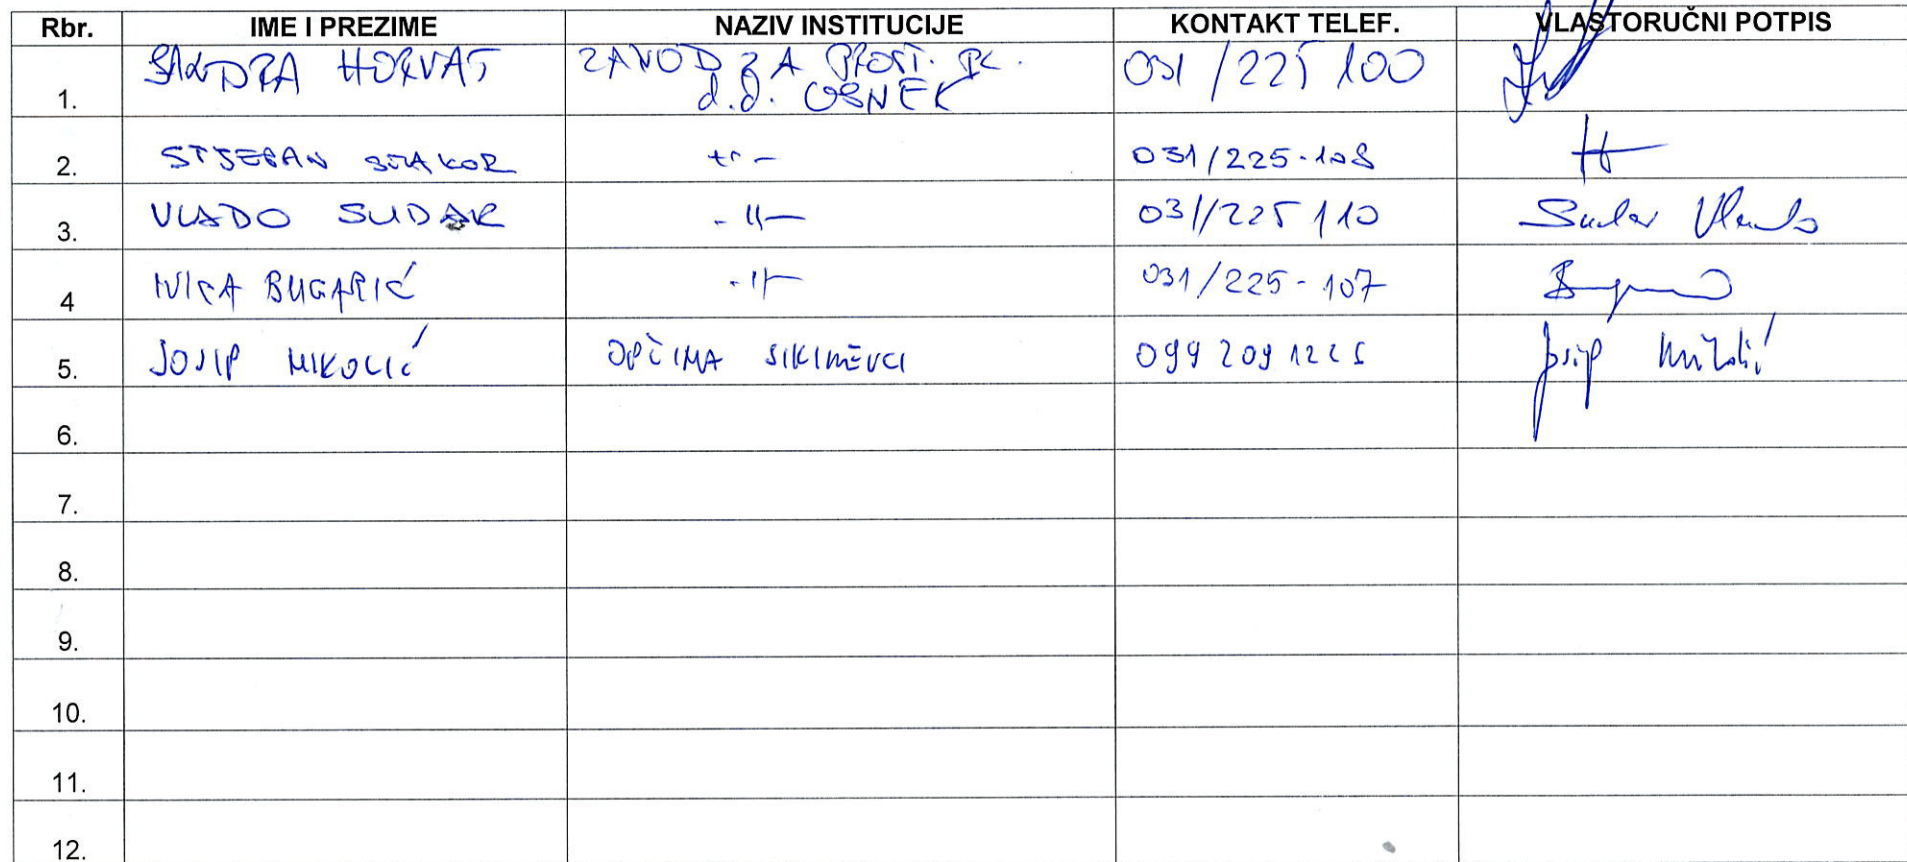 Rbr. IME I PREZIME NAZIV INSTITUCIJE KONTAKT TELEF. VLASTORUČNI POTPIS
1. SANDRA HORVAT ZAVOD ZA PROST. d.d. OSIJEK 031/225 100
2. STJEPAN 031/225-108
3. VLADO SUDAR -॥- 031/225 110 Sudar Vlado
4 IVICA BUGARIĆ -॥- 031/225-107
5. JOSIP NIKOLIĆ OPĆINA SIKIREVCI 099 209 1225 Josip Nikolić
6.
7.
8.
9.
10.
11.
12.